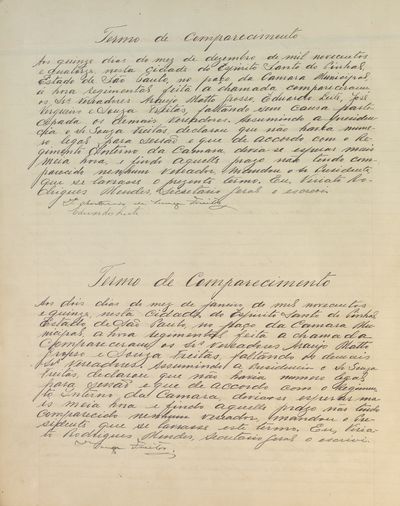 Termo de Comparecimento
Aos quinze dias do mez de dezembro de mil novecentos
e quatorze, nesta cidade do Espirito Santo do Pinhal,
Estado de São Paulo, no paço da Camara Municipal,
á hora regimental feita a chamada compareceram
os Srs. vereadores Araujo Motta, Eduardo Leite, José
e Souza Freitas, faltando sem causa parti-
cipada os demais vereadores. Assumindo a presiden-
cia o Sr. Souza Freitas, declarou que não havia nume-
ro legal para sessão e que de accordo com o Re-
gimento Interno da Camara, devia-se esperar mais
meia hora, e findo aquelle prazo não tendo com-
parecido nenhum vereador, mandou o Sr. Presidente
que se lavrasse o prezente termo. Eu, Viriato Ro-
drigues Mendes, Secretario Geral o escrevi.
Souza Freitas
Eduardo Leite
Termo de Comparecimento
Aos dois dias do mez de janeiro de mil novecentos
e quinze, nesta cidade do Espirito Santo do Pinhal
Estado de São Paulo, no paço da Camara Mu-
nicipal, á hora regimental feita a chamada
compareceram os Srs. Vereadores Araujo Motta
e Souza Freitas, faltando os demais
Srs. Vereadores. Assumindo a Presidencia o Sr. Souza
Freitas, declarou que não havia numero legal
para sessão e que de accordo com o Regimen-
to Interno da Camara, devia-se esperar ma-
is meia hora e findo aquelle prazo não tendo
comparecido nenhum vereador, mandou o Pre-
sidente que se lavrasse este termo. Eu, Viria-
to Rodrigues Mendes, Secretario Geral o escrevi.
Souza Freitas